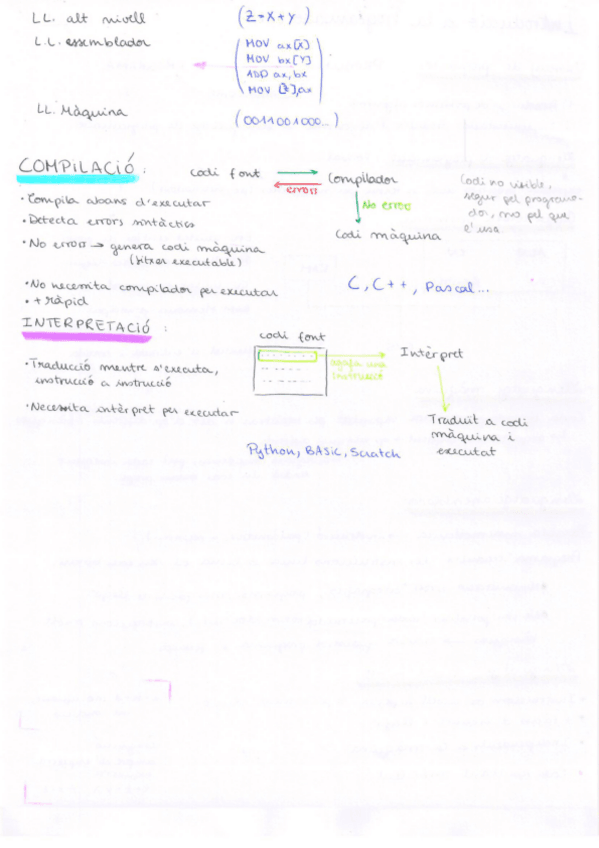 LL. alt nivell (Z=X+Y)
L.L. essemblador
MOV ax[X]
MOV bx[Y]
ADD ax, bx
MOV [Z],ax
LL. Màquina (0011001000...)
COMPILACIÓ:
codi font
errors
Compilador
No error
Codi màquina
Codi no visible,
segur pel programa-
dor, mo pel que
l'usa
· Compila abans d'executar
· Detecta errors sintàctics
· No errors → genera codi màquina
(fitxer executable)
· No necessita compilador per executar
· + Ràpid
C, C++, Pascal...
INTERPRETACIÓ:
· Traducció mentre s'executa,
instrucció a instrucció
· Necessita intèrpret per executar
codi font
agafa una
instrucció
Intèrpret
Traduït a codi
màquina i
executat
Python, BASIC, Scratch